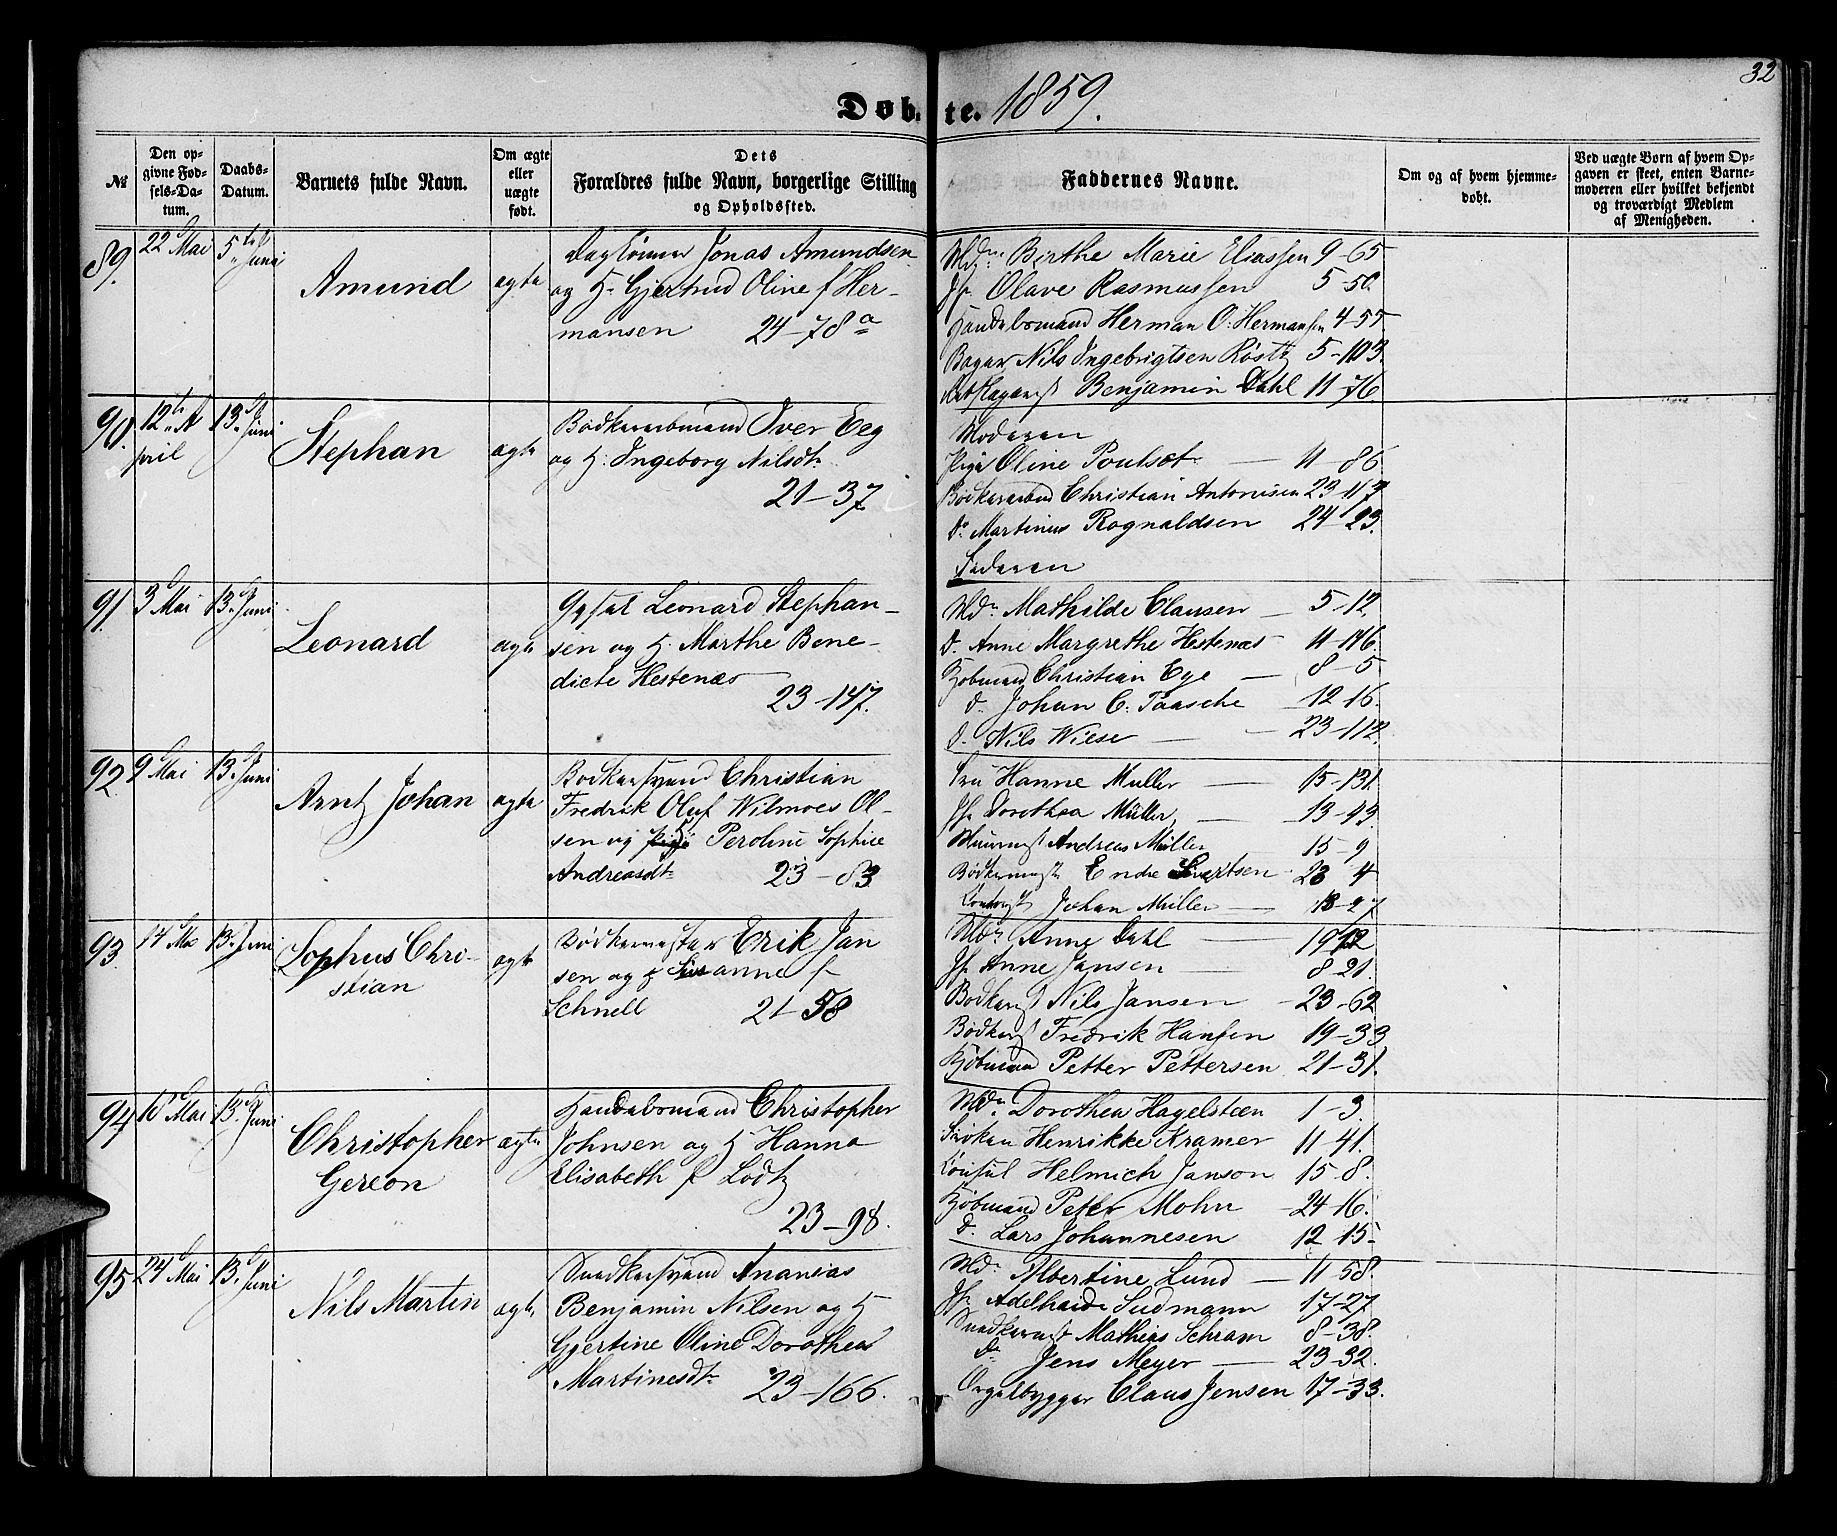 32
Døbte. 1859.
№
Den opgivne Fødsels-Datum.
Daabs-Datum.
Barnets fulde Navn.
Om ægte eller uægte født.
Dets Forældres fulde Navn, borgerlige Stilling og Opholdssted.
Faddernes Navne.
Om og af hvem hjemmedøbt.
Ved uægte Børn af hvem Opgaven er skeet, enten Barnemoderen eller hvilket bekjendt og troværdigt Medlem af Menigheden.
89. 22 Mai 5te Juni
Amund
ægte
Daglønner Jonas Amundsen
og H. Gjertrud Oline f Her-
mansen 24-78a
Md. Birthe Marie Eliassen 9-65
Jfr. Olave Rasmussen 5-50.
Handelsmand Herman O. Hermansen 4-55
Bager Nils Ingebrigtsen 5-103
Benjamin Dahl 11-76
90. 12te April 13. Juni
Stephan
ægte
Bødkersvend Iver Eeg
og H. Ingeborg Nilsdtr
21-37
Moderen
Pige Oline Poulsdtr 11-86
Bødkersvend Christian Antonisen 23-117
Do Martinus Rognaldsen 24-123.
Faderen
91. 3 Mai 13. Juni
Leonard
ægte
Leonard Stephan-
sen og H. Marthe Bene-
dicte Hestenæs
23-147.
Md. Mathilde Clausen 5-12
D. Anne Margrethe Hestenæs 11-146.
Kjøbmand Christian Ege 8-5
d. Johan C. Paasche 12-16.
d. Nils Wiese 23-112.
92 9 Mai 13. Juni
Arnt Johan
ægte
Bødkersvend Christian
Fredrik Oluf Wilmoes Ol-
sen og Peroline Sophie
Andreasdtr 23-83
Fru Hanne Müller 15-131.
Jfr. Dorothea Müller 13-43.
Muurmst Andreas Müller 15-9
Bødkermstr Endre Sivertsen 23-4
Johan Müller 18-27
93. 14 Mai 13. Juni
Sophus Chri-
stian
ægte
Bødkermester Erik Jan
sen og H Susanne f
Schnell 21-58
Md. Anne Dahl
Jfr. Anne Jansen 8-21.
Bødkermst Nils Jansen 23-62
Bødkermst Fredrik Hansen 19-33
Kjøbmand Petter Pettersen 21-31.
94 10 Mai 13. Juni
Christopher
Gereon
ægte
Handelsmand Christopher
Johnsen og H Hanna
Elisabeth f Lodtz
23-98.
Md. Dorothea Hagelsteen 1-3.
Frøken Henrikke Kramer 11-41.
Consul Helmich Janson 15-8.
Kjøbmand Peter Mohn 24-16.
d. Lars Johannesen 12-15
95 24 Mai 13. Juni
Nils Martin
ægte
Snedkersvend Ananias
Benjamin Nilsen og H
Gjertine Oline Dorothea
Martinesdtr 23-166.
Md. Albertine Lund 11-58.
Jfr. Adelheide Sudmann 17-27
Snedkermst Mathias Schram 8-38.
do Jens Meyer 23-32.
Orgelbygger Claus Jensen 17-33.